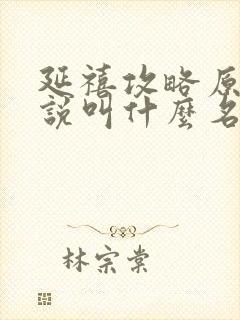 延禧攻略原
說叫什麼名
林宗棠